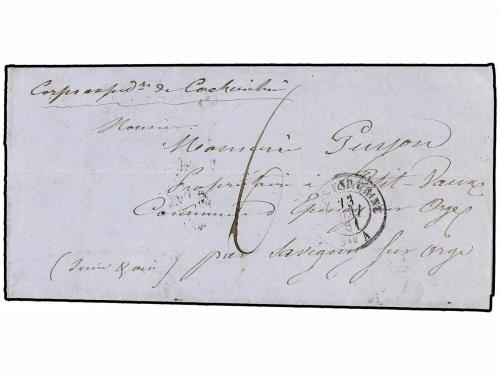 Corps expedre de Cochinchine
Monsieur
Monsieur Guyon
Propriétaire à Petit-Vaux
Commune d'Epinay sur Orge
près Savigny sur Orge
(Seine & oise)
6
13
BAU A